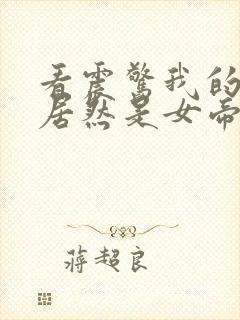 看震驚我的
居然是女帝
蔣超良